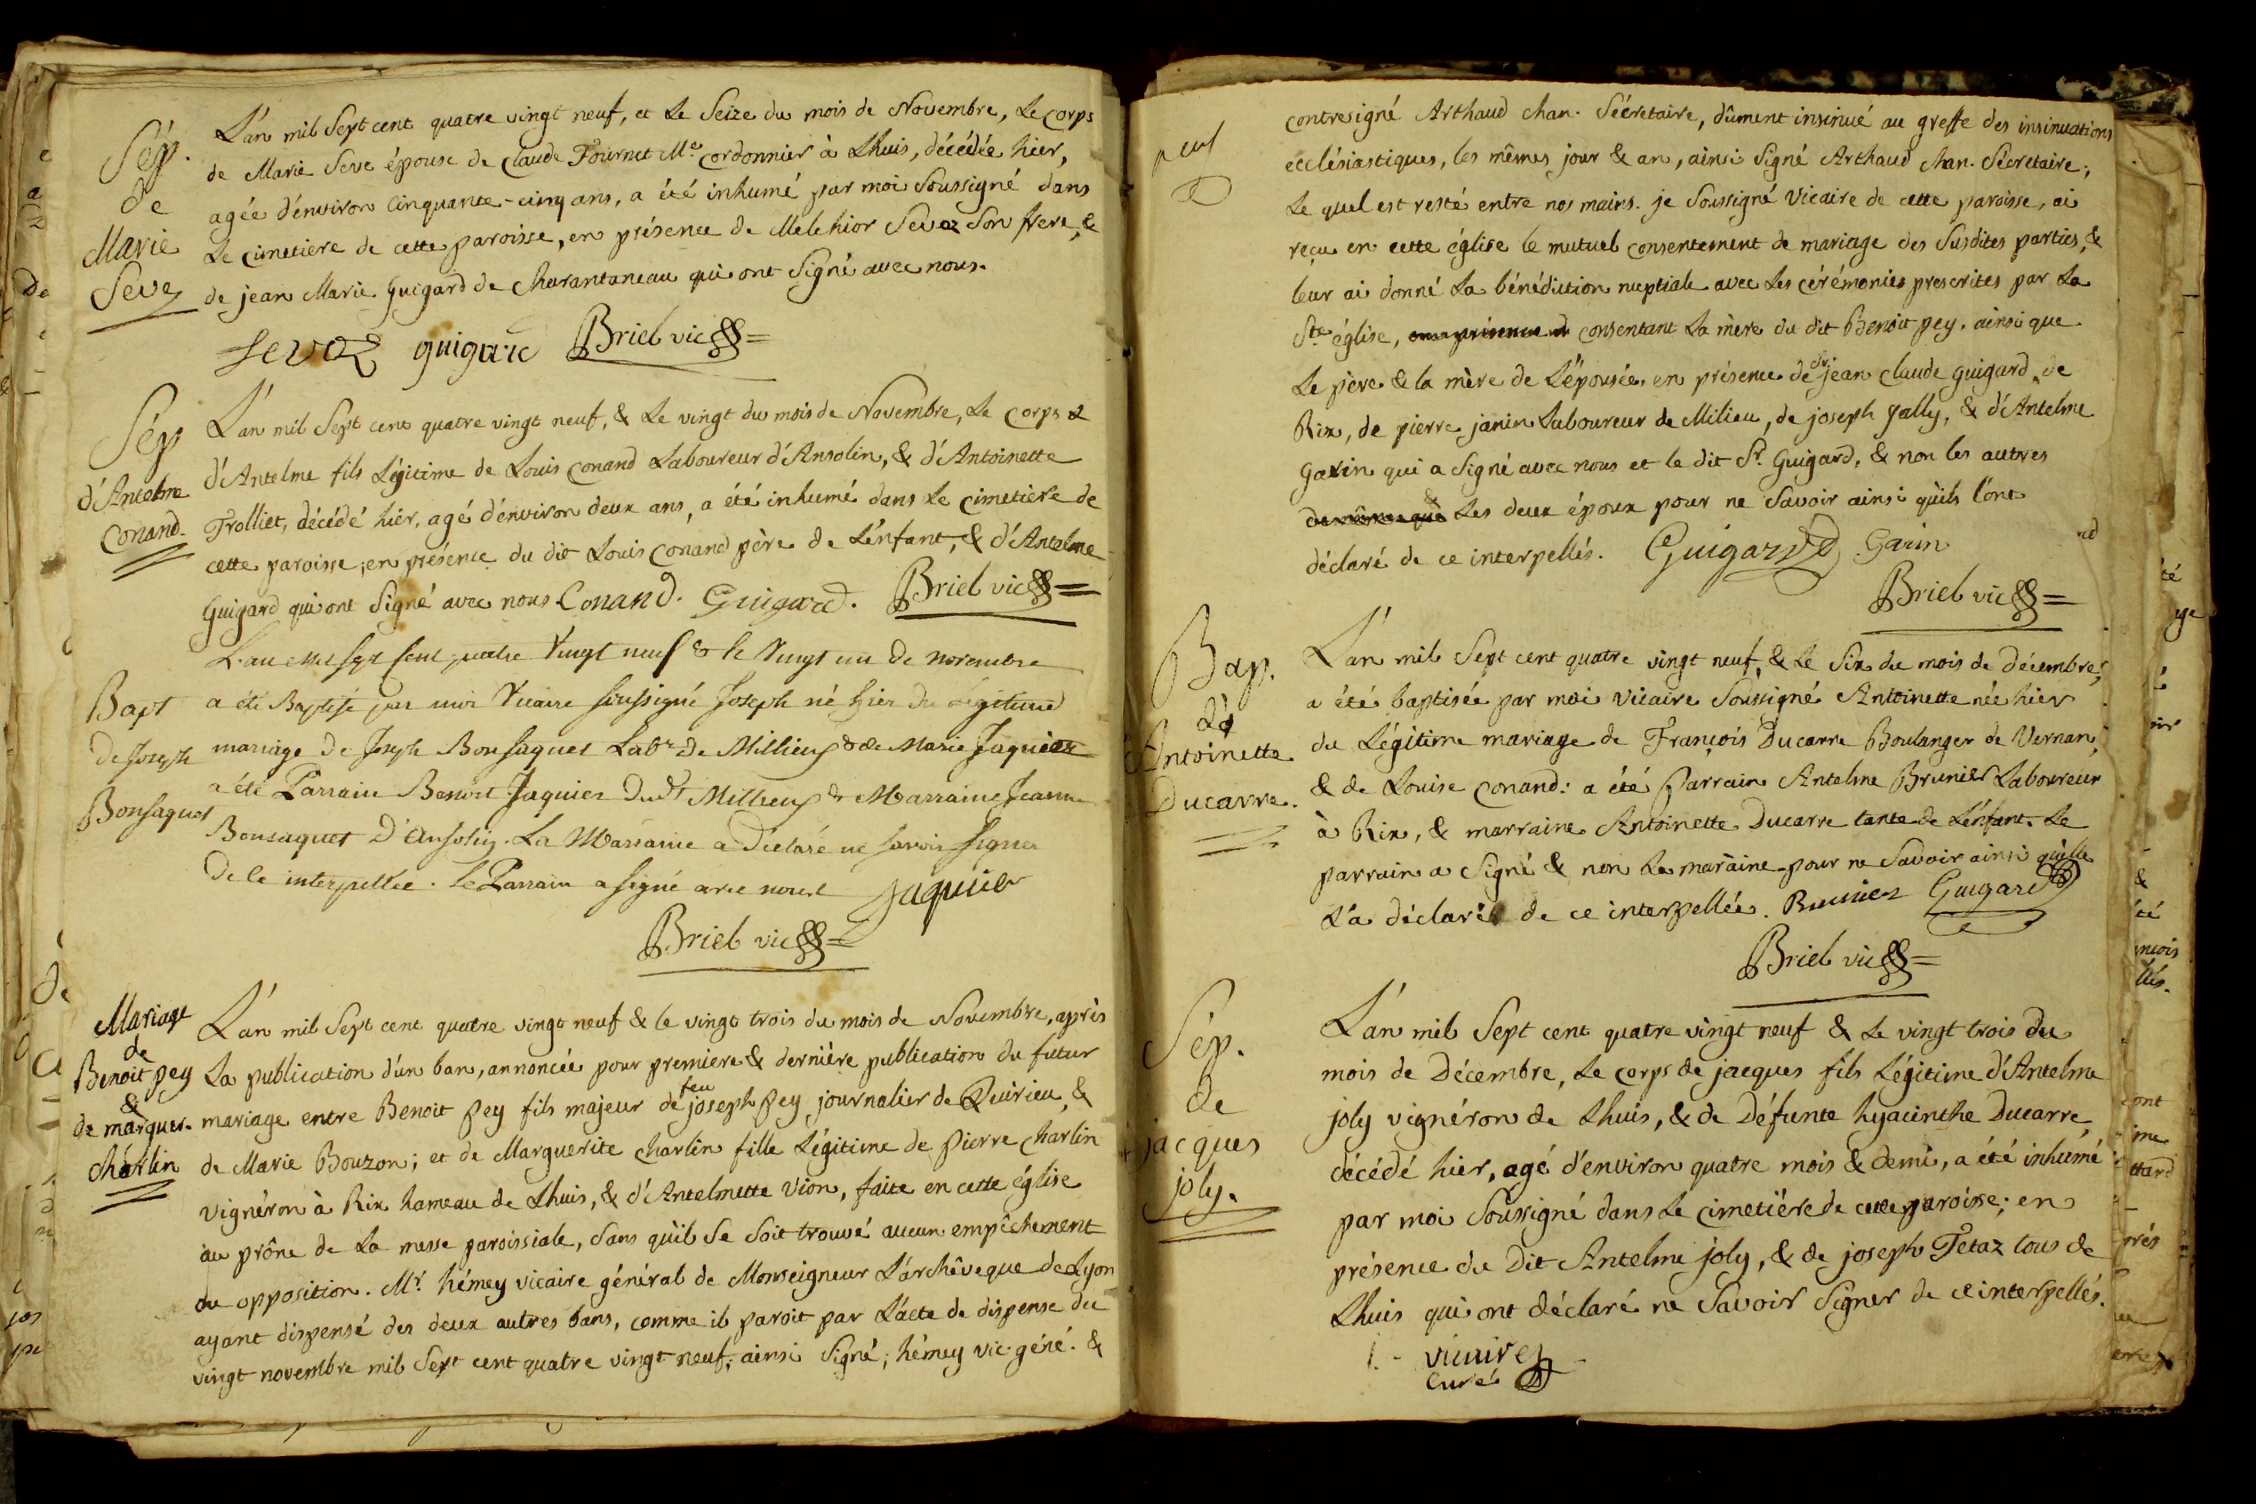 Sép.
de
Marie
Seve
L'an mil Sept cent quatre vingt neuf, et Le Seize du mois de Novembre, Le corps
de Marie Seve épouse de Claude Fournet Me. Cordonnier à Lhuis, décédée hier,
agée d'environ Cinquante-cinq ans, a été inhumé par moi Soussigné dans
Le cimetiere de cette paroisse, en présence de Melchior Sevoz Son frere, &
de jean Marie Guigard de Charantaneau qui ont Signé avec nous.
sevoz guigard Briel vic
Sép
d'Antelme
Conand.
L'an mil Sept cent quatre vingt neuf, & Le vingt du mois de Novembre, Le Corps
d'Antelme fils Légitime de Louis Conand Laboureur d'Ansolin, & d'Antoinette
Trolliet, décédé hier, agé d'environ deux ans, a été inhumé dans Le cimetiere de
cette paroisse; en présence du dit Louis Conand père de L'enfant, & d'Antelme
Guigard qui ont Signé avec nous. Conand. Guigard. Briel vic
Bapt
de Joseph
Bonsaquet
L'an mil sept Cent quatre Vingt neuf & le Vingt un de novembre
a été Baptisé par moi Vicaire soussigné Joseph né hier du Légitime
mariage de Joseph Bonsaquet Labr. de Millieu & de Marie Jaquier
a été Parrain Benoit Jaquier dudt Millieu & Marraine Jeanne
Bonsaquet d'Ansolin. La Marraine a déclaré ne savoir signer
de ce interpellée. le Parrain a signé avec nous. Jaquier
Briel vic
Mariage
de
Benoit pey
&
de marguer.
Charlin
L'an mil Sept cent quatre vingt neuf & le vingt trois du mois de Novembre, après
La publication d'un ban, annoncée pour premiere & dernière publication du futur
mariage entre Benoit Pey fils majeur de feu joseph Pey journalier de Quirieu, &
de Marie Bouzon; et de Marguerite Charlin fille Légitime de Pierre Charlin
Vignéron à Rix hameau de Lhuis, & d'Antelmette Vion, faite en cette église
au prône de La messe paroissiale, Sans qu'il Se Soit trouvé aucun empêchement
ou opposition. Mr. hémey vicaire général de Monseigneur L'archêveque de Lyon
ayant dispensé des deux autres bans, comme il paroit par L'acte de dispense du
vingt novembre mil Sept cent quatre vingt neuf; ainsi Signé; hémey vic. géné. &
contresigné Arthaud chan. Sécretaire, dûment insinué au greffe des insinuations
ecclésiastiques, les mêmes jour & an, ainsi Signé Arthaud chan. Sécretaire;
Le quel est resté entre nos mains. je Soussigné Vicaire de cette paroisse, ai
reçu en cette église le mutuel consentement de mariage des Susdites parties, &
leur ai donné La bénédiction nuptiale avec Les cérémonies prescrites par La
Ste. église, consentant La mère du dit Benoit pey, ainsi que
Le père & la mère de L'épousée, en présence de Sr. jean Claude Guigard de
Rix, de pierre janin Laboureur de Milieu, de joseph Jally, & d'Antelme
Garin qui a Signé avec nous et le dit Sr. Guigard, & non les autres
& Les deux époux pour ne Savoir ainsi qu'ils l'ont
déclaré de ce interpellés. Guigard Garin
Briel vic
Bap.
d'
Antoinette
Ducarre.
L'an mil Sept cent quatre vingt neuf, & Le Six du mois de décembre,
a été baptisée par moi Vicaire Soussigné Antoinette née hier
du Légitime mariage de François Ducarre Boulanger de Vernan,
& de Louise Conand: a été Parrain Antelme Brunier Laboureur
à Rix, & marraine Antoinette Ducarre tante de L'enfant. Le
parrain a Signé & non La maraine pour ne Savoir ainsi qu'elle
L'a déclaré de ce interpellée. Brunier Guigard
Briel vic
Sép.
de
jacques
joly.
L'an mil Sept cent quatre vingt neuf & Le vingt trois du
mois de Décembre, Le corps de jacques fils Légitime d'Antelme
joly vignéron de Lhuis, & de Défunte hyacinthe Ducarre,
décédé hier, agé d'environ quatre mois & demi, a été inhumé
par moi Soussigné dans Le cimetière de cette paroisse; en
présence du Dit Antelme joly, & de joseph Tetaz tous de
Lhuis qui ont déclaré ne Savoir Signer de ce interpellés.
vicaire
Curé